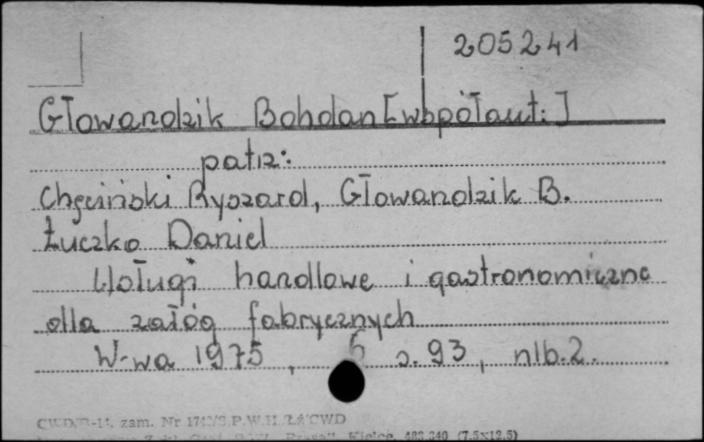 205241
Głowandzik Bohdan [współaut.]
patrz:
Chęciński Ryszard, Głowandzik B.
Łuczko Daniel
Usługi handlowe i gastronomiczne
dla załóg fabrycznych
W-wa 1975, s. 93, nlb. 2.
zam. Nr CWD
Kielce, 483.340 (7,5x12,5)